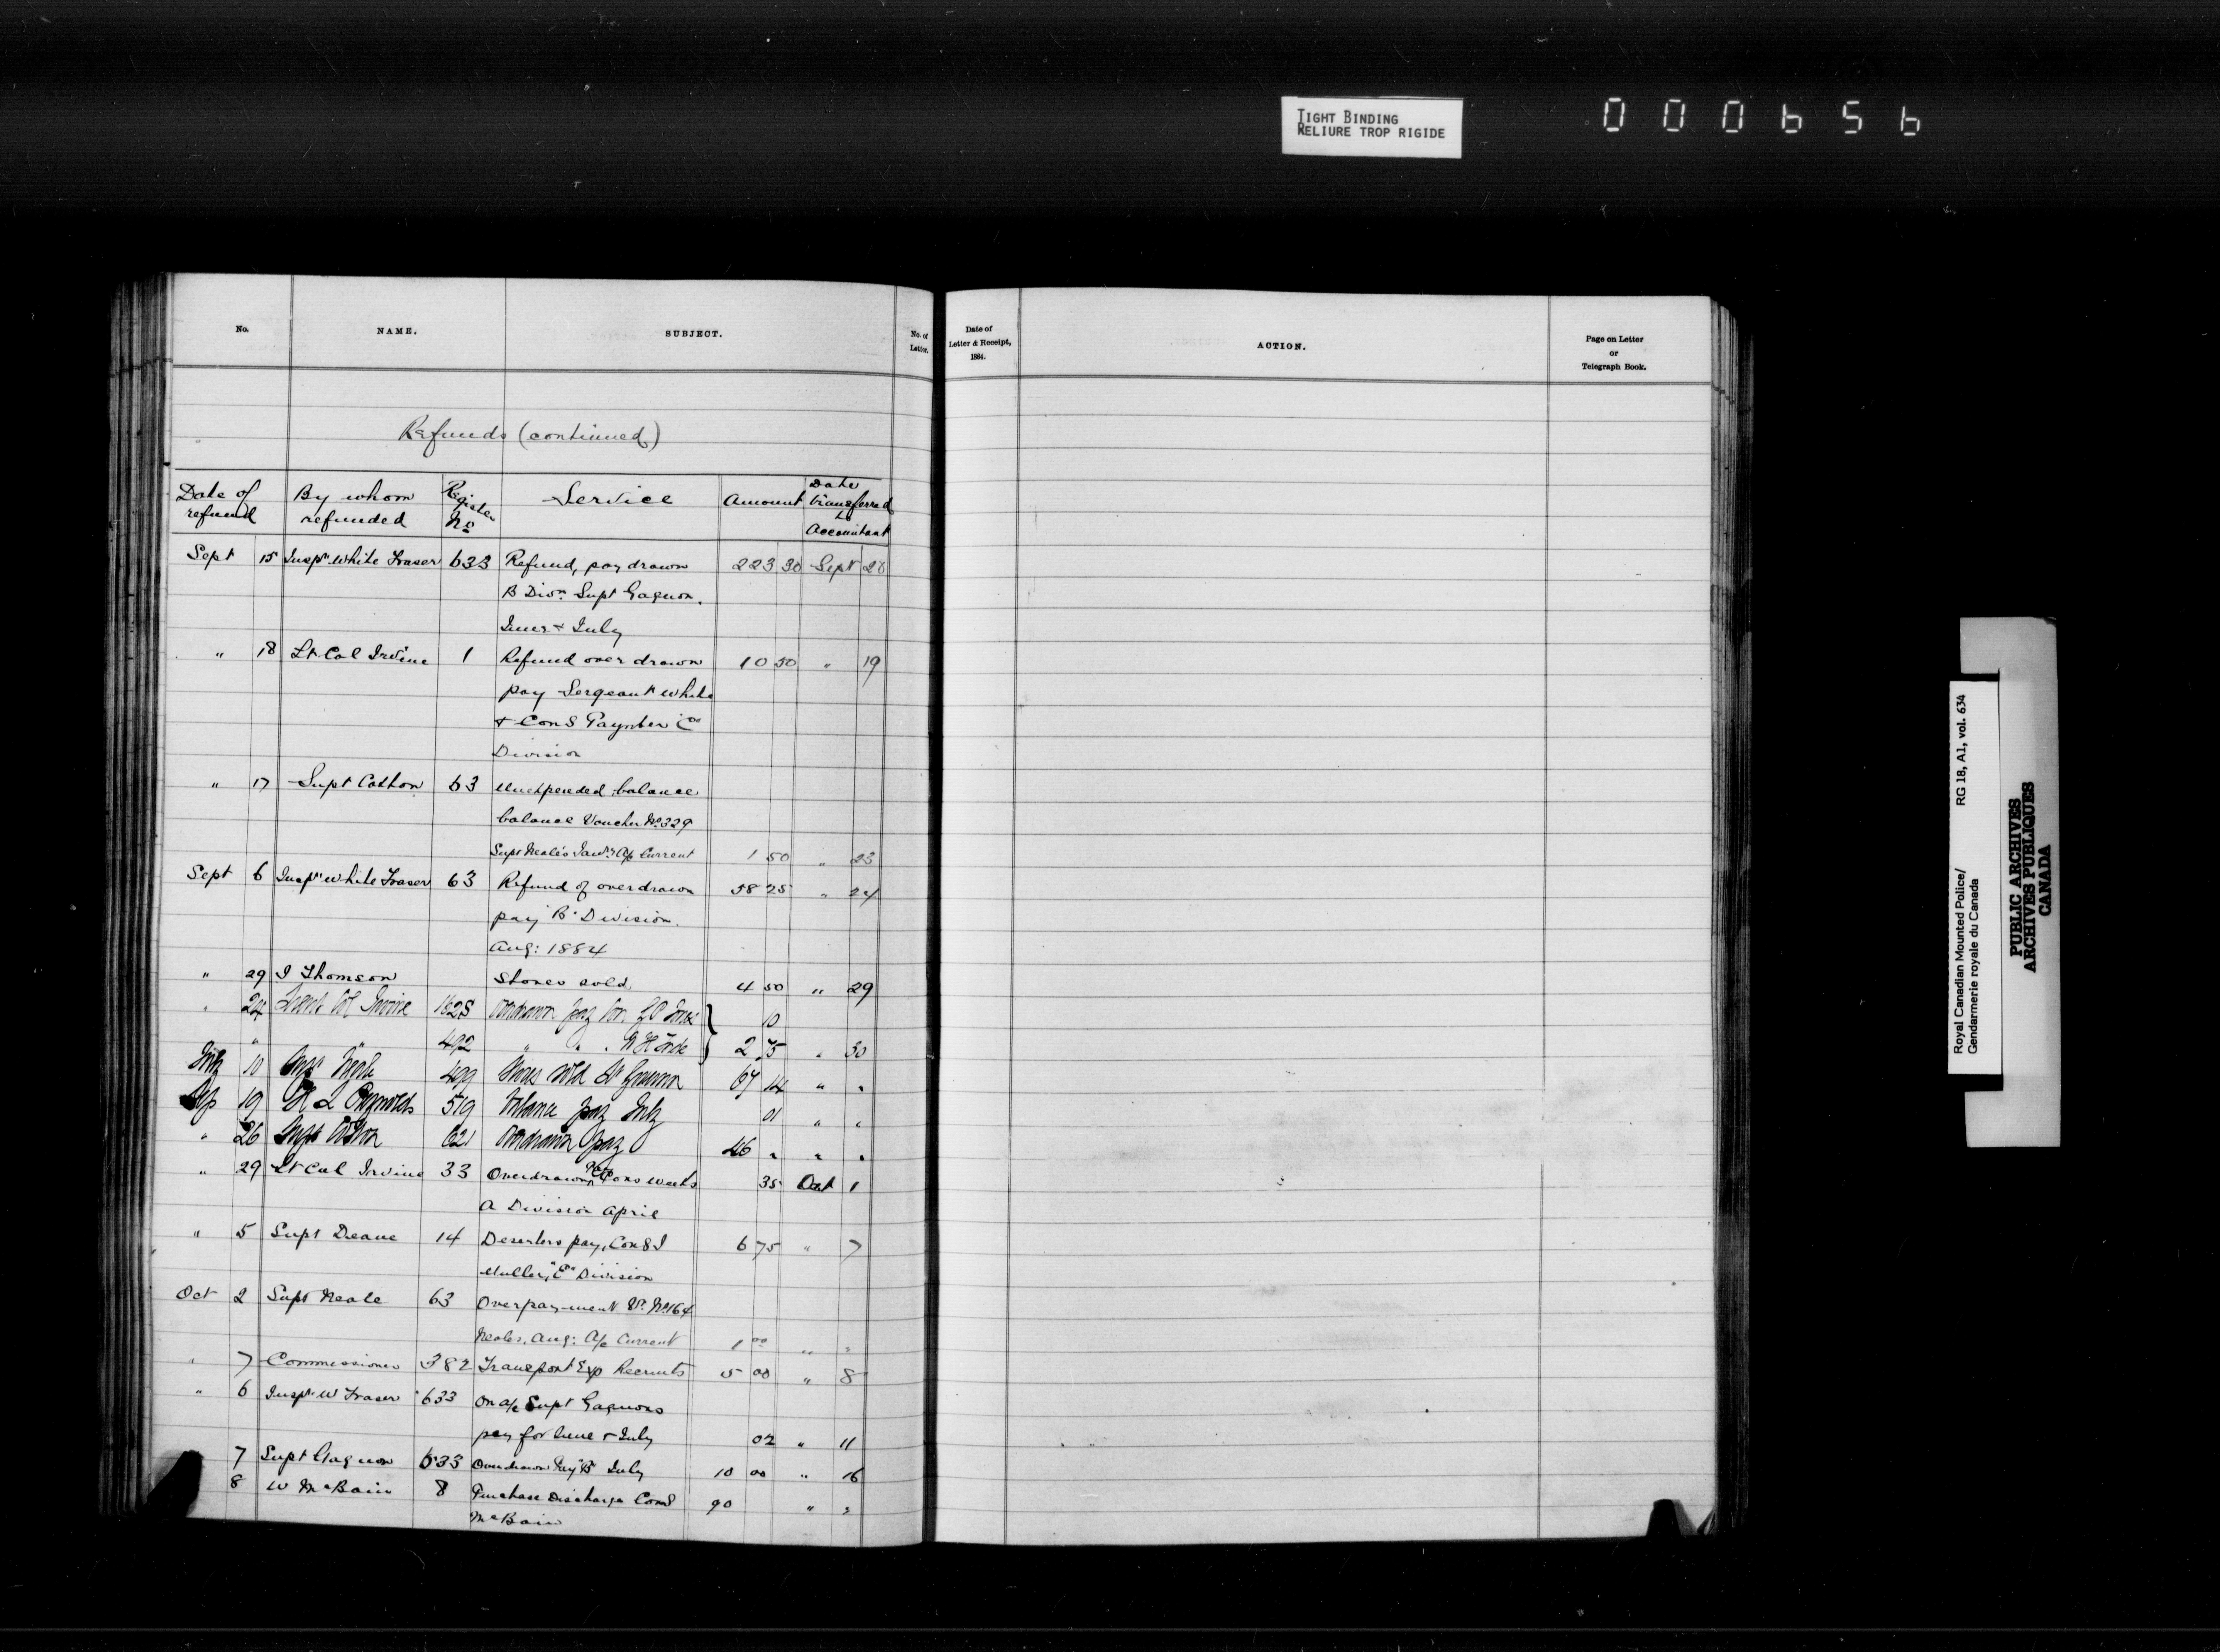 TIGHT BINDING
RELIURE TROP RIGIDE
000656
No. NAME. SUBJECT. No. of Letter.
Date of Letter & Receipt, 1884. ACTION. Page on Letter or Telegraph Book.
Refunds (continued)
Date of refund By whom refunded Register No Service Amount Date transferred to Accountant
Sept 15 Inspr White Fraser 633 Refund, pay drawn 223 30 Sept
B Divn Supt Gagnon.
June & July
" 18 Lt Col Irvine 1 Refund over drawn 10 50 " 19
pay Sergeant White
& Cons Paynter
Division
" 17 Supt Cotton 63 Unexpended balance
balance Voucher No 329
Supt Neale's A/c Current 1 50 " 23
Sept 6 Inspr White Fraser 63 Refund of overdrawn 58 25 " 24
pay "B" Division.
Aug: 1884
" 29 Thomson Stores sold. 4 50 " 29
" 24 Lieut Col Irvine 1625 Overdrawn pay 10
" " 492 " " 2 75 " 30
10 499 sold 67 14 " "
Sep 19 519 Balance pay July 01 " "
" 26 Supt Cotton 621 Overdrawn pay 46 " " "
" 29 Lt Col Irvine 33 Overdrawn pay Cons Weeks 35 Oct 1
A Division April
" 5 Supt Deane 14 Deserters pay, Cons I 6 75 " 7
Muller, "E" Division
Oct 2 Supt Neale 63 Overpayment Vr. No 164
Neales. Aug: A/c Current 1 00 " "
" 7 Commissioner 382 Transport Exp Recruits 5 00 " 8
" 6 Inspr W Fraser 633 On a/c Supt Gagnons
pay for June & July 02 " 11
7 Supt Gagnon 633 Overdrawn Pay "B" July 10 00 " 16
8 W McBain 8 Purchase Discharge Const 90 " "
McBain
Royal Canadian Mounted Police/ RG 18, A1, vol. 634
Gendarmerie royale du Canada
PUBLIC ARCHIVES
ARCHIVES PUBLIQUES
CANADA